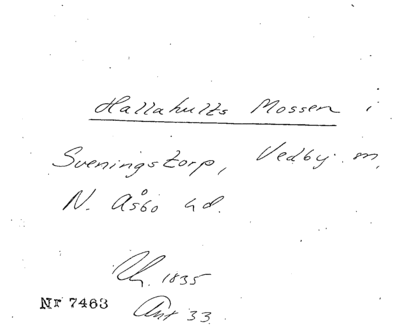 Hallahults Mossen i
Sveningstorp, Vedby m,
N. Åsbo hd.
1835
Nr 7463
Ant 33.